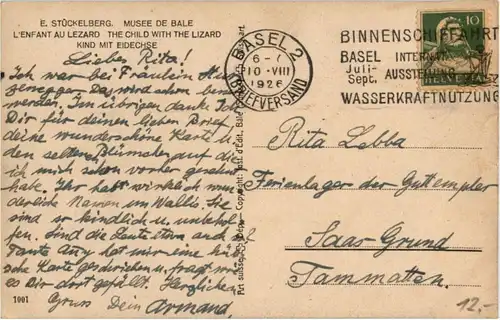 E. STÜCKELBERG. MUSEE DE BALE
L'ENFANT AU LEZARD THE CHILD WITH THE LIZARD
KIND MIT EIDECHSE
Liebes Rita!
Ich war bei Fräulein
Day wird schon
werden. Im übrigen danke Ich
Dir für deinen lieben Brief,
deine wunderschöne Karte u.
den selben Blümchen auf die
ich mich schon vorher gefreut
habe. Ihr habt wirklich wun
derliche Namen im Wallis. Sie
sind so kindlich u. unbehol-
fen. Sind die Leute etwa auch so?
Tante Any hat mir eine
Karte geschrieben u. fragt mich
es Dir dort gefällt. Herzlichen
Gruss Dein Armand.
1001
BASEL 2
6-7
10.VIII
1926
BRIEFVERSAND
BINNENSCHIFFAHRT
BASEL INTERNAT.
Juli-
Sept. AUSSTELLUNG
WASSERKRAFTNUTZUNG
10
HELVETIA
Rita Labba
Ferienlager der Guttempler
Saas-Grund
Tammatten.
12.-